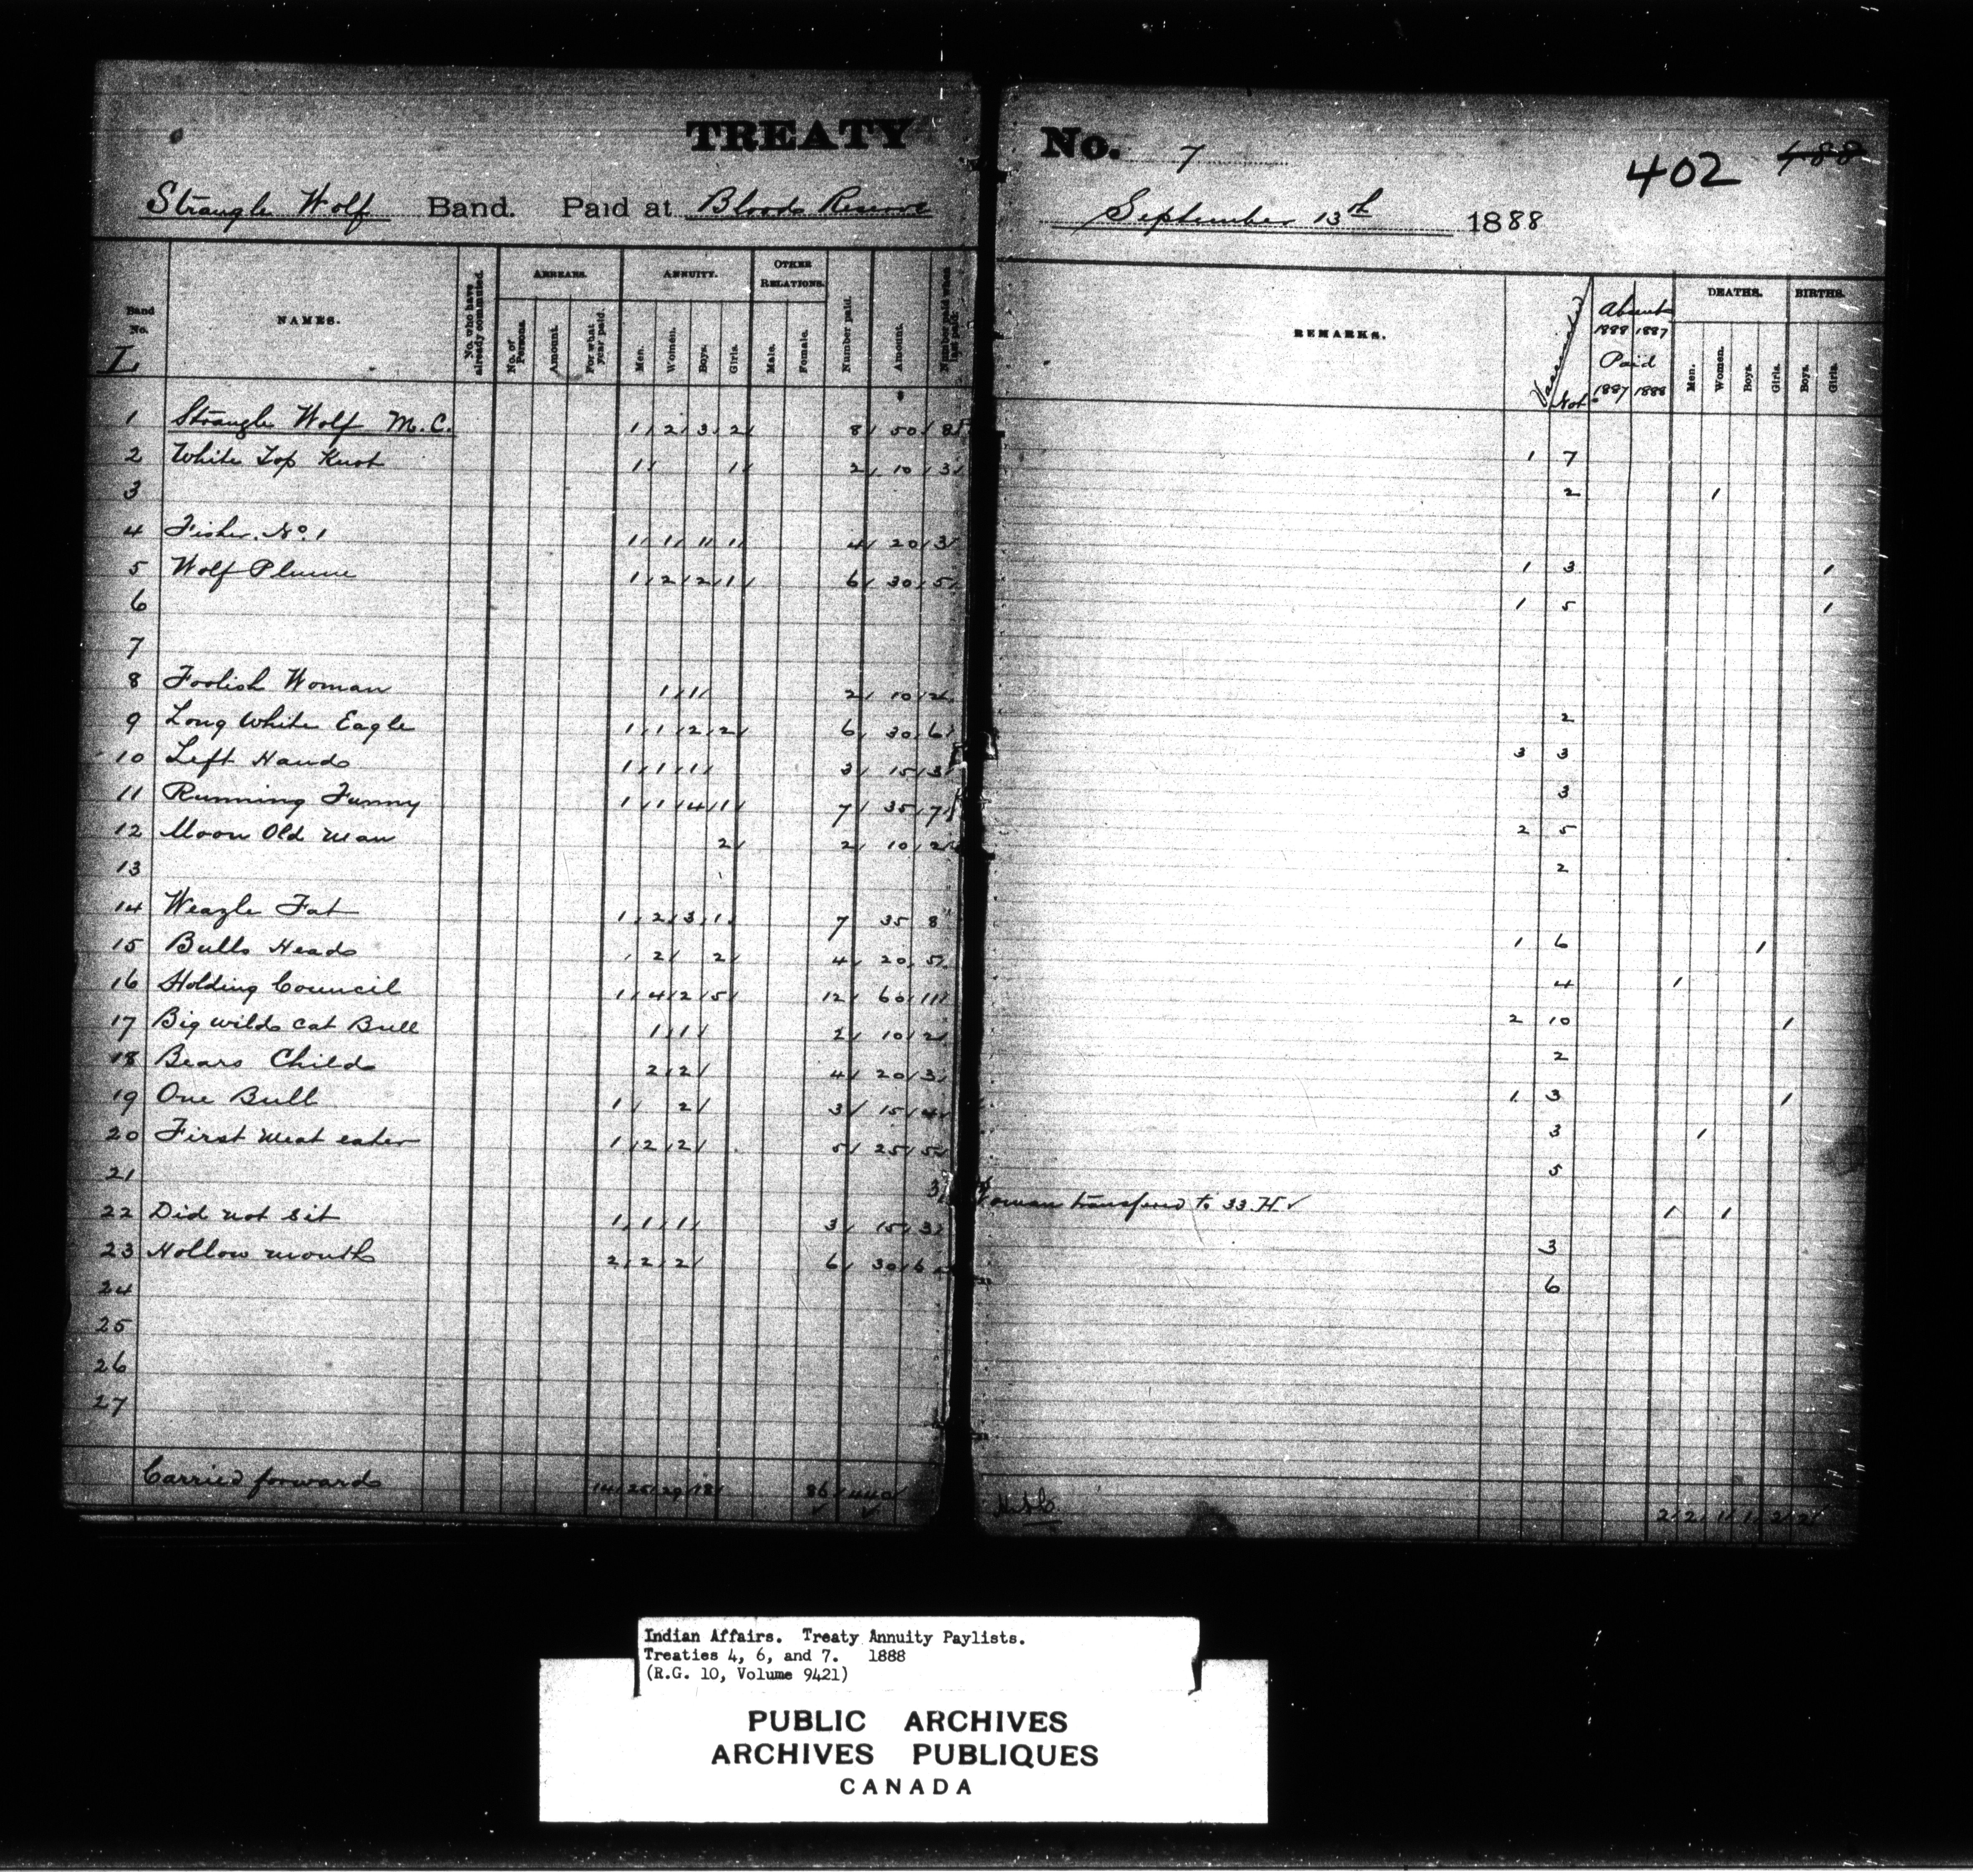 TREATY No. 7
402 488
Strangle Wolf Band. Paid at Bloods Reserve September 13th 1888
Band No. L NAMES. No. who have already commuted. ARREARS. No. of Persons. Amount. For what year paid. ANNUITY. Men. Women. Boys. Girls. OTHER RELATIONS. Male. Female. Number paid. Amount. Number paid when last paid. REMARKS. Vaccinated Not Absent 1888 1887 Paid 1887 1888 DEATHS. Men. Women. Boys. Girls. BIRTHS. Boys. Girls.
1 Strangle Wolf M.C. 1 2 3 2 8 50 8 1 7
2 White Top Knot 1 1 2 10 3 2 1
3
4 Fisher No. 1 1 1 1 1 4 20 3 1 3 1
5 Wolf Plume 1 2 2 1 6 30 5 1 5 1
6
7
8 Foolish Woman 1 1 2 10 2 2
9 Long White Eagle 1 1 2 2 6 30 6 3 3
10 Left Hand 1 1 1 3 15 3 3
11 Running Funny 1 1 4 1 7 35 7 2 5
12 Moon Old man 2 2 10 2 2
13
14 Weazle Fat 1 2 3 1 7 35 8 1 6 1
15 Bulls Head 2 2 4 20 5 4 1
16 Holding Council 1 4 2 5 12 60 11 2 10 1
17 Big wild cat Bull 1 1 2 10 2 2
18 Bears Child 2 2 4 20 3 1 3 1
19 One Bull 1 2 3 15 4 3 1
20 First meat eater 1 2 2 5 25 5 5
21 3 Woman transferred to 33.H 1 1
22 Did not sit 1 1 1 3 15 3 3
23 Hollow mouth 2 2 2 6 30 6 6
24
25
26
27
Carried forward 14 25 29 18 86 440 2 2 1 1 2 2
Indian Affairs. Treaty Annuity Paylists.
Treaties 4, 6, and 7. 1888
(R.G. 10, Volume 9421)
PUBLIC ARCHIVES
ARCHIVES PUBLIQUES
CANADA